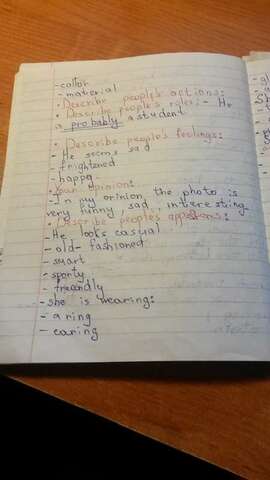 -collor
-material
• Describe people's actions:
• Describe people's roles: - He
is probably a student
• Describe people's feelings:
- He seems sad
- frightened
- happy
• Your opinion:
- In my orinion, the photo is
very funny, sad, intieresting
• Describe people's
- He looks casual
- old-fashioned
- smart
- sporty
- freandly
- she is wearing:
- a ring
- earing